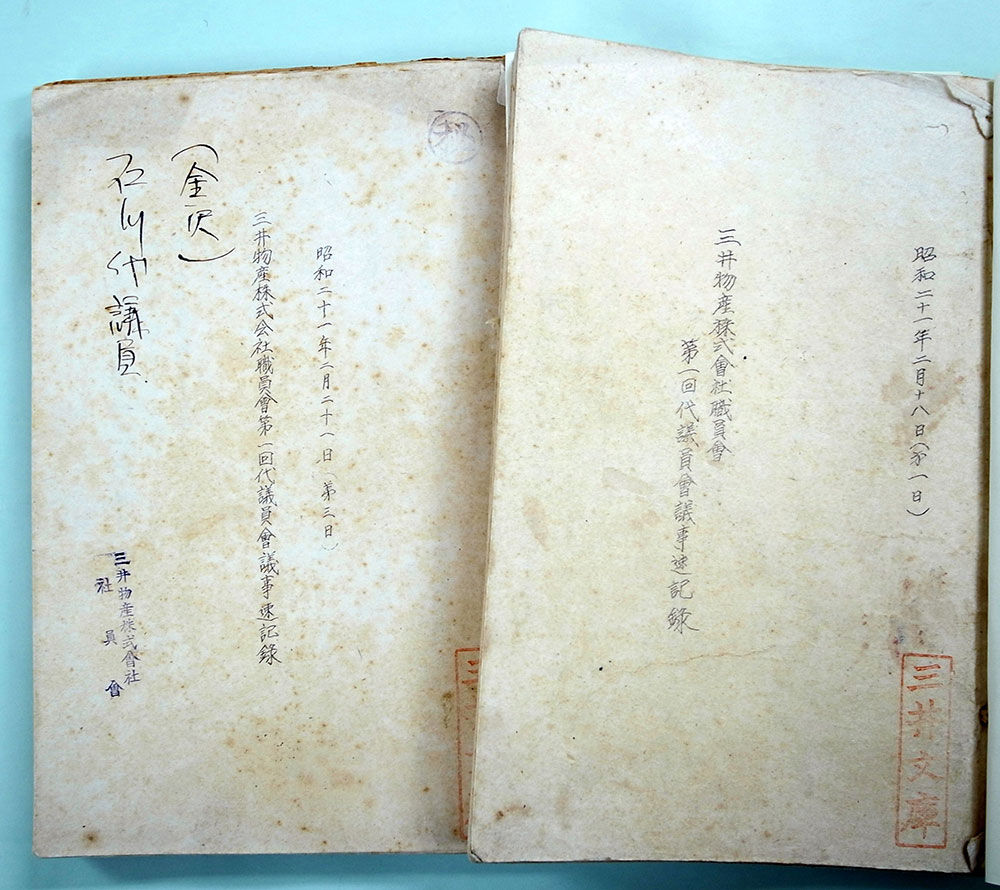 昭和二十一年二月十八日(第一日)
三井物産株式會社職員會
第一回代議員會議事速記録
三井文庫
昭和二十一年二月二十一日(第三日)
三井物産株式会社職員會第一回代議員會議事速記録
(金沢)
石川代議員
三井物産株式會社
社員會